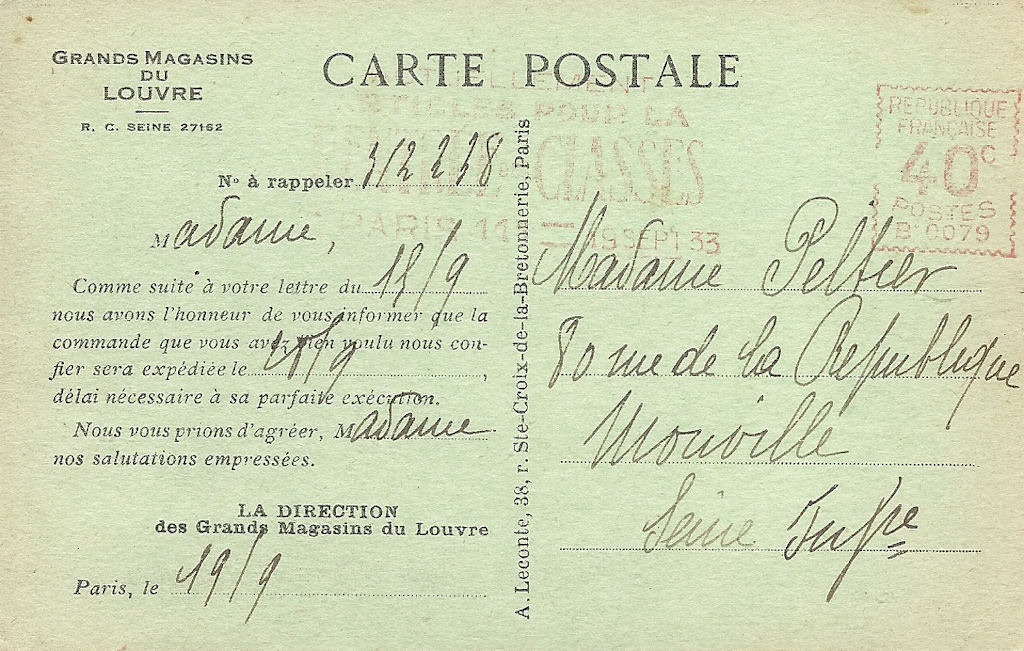 GRANDS MAGASINS
DU
LOUVRE
R. C. SEINE 27162
CARTE POSTALE
ARTICLES POUR LA
CLASSES
PARIS 11
19 SEPT 33
REPUBLIQUE
FRANÇAISE
40c
POSTES
B 0079
No à rappeler 312238
Madame,
Comme suite à votre lettre du 15/9
nous avons l'honneur de vous informer que la
commande que vous avez bien voulu nous con-
fier sera expédiée le /9 ,
délai nécessaire à sa parfaite exécution.
Nous vous prions d'agréer, Madame
nos salutations empressées.
LA DIRECTION
des Grands Magasins du Louvre
Paris, le 19/9
A. Leconte, 38, r. Ste-Croix-de-la-Bretonnerie, Paris
Madame Peltier
80 rue de la République
Monville
Seine Infre